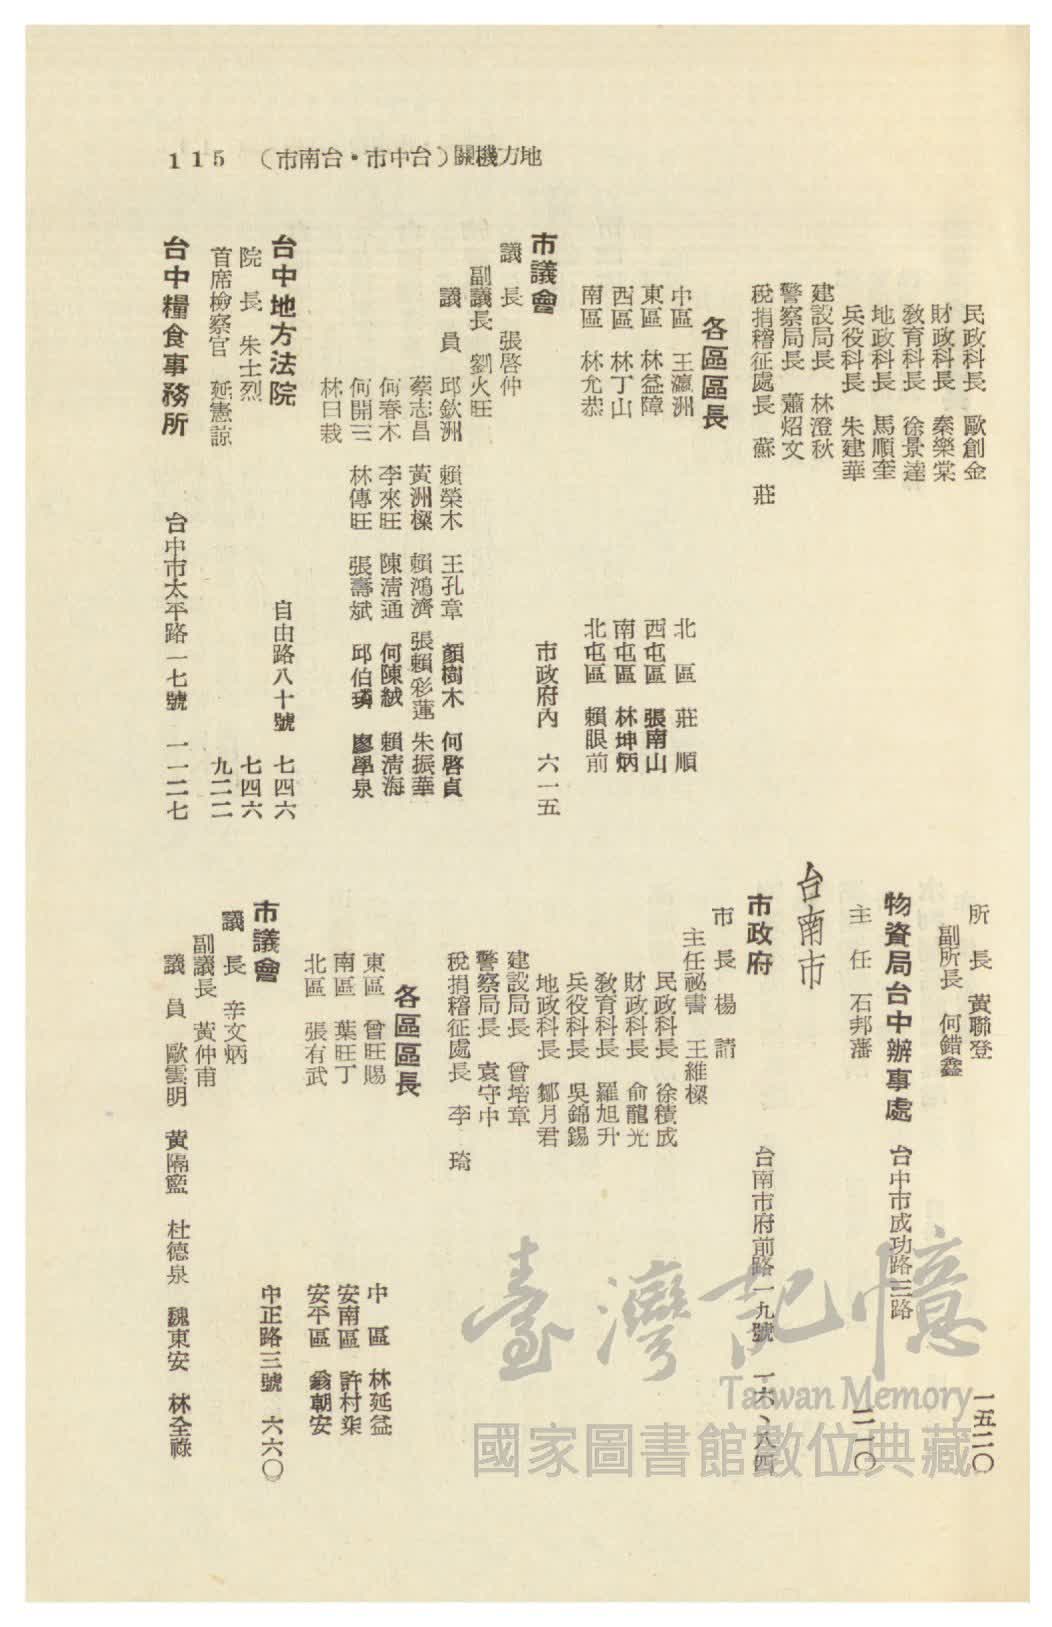 地方機關(台中市·台南市) 115
民政科長 歐創金
財政科長 秦樂棠
敎育科長 徐景達
地政科長 馬順奎
兵役科長 朱建華
建設局長 林澄秋
警察局長 蕭炤文
稅捐稽征處長 蘇 莊
各區區長
中區 王瀛洲 北區 莊順
東區 林益障 西屯區 張南山
西區 林丁山 南屯區 林坤炳
南區 林允恭 北屯區 賴眼前
市議會 市政府內 六一五
議長 張啓仲
副議長 劉火旺
議員 邱欽洲 賴榮木 王孔章 顏樹木 何啓貞
蔡志昌 黃洲樑 賴鴻濟 張賴彩蓮 朱振華
何春木 李來旺 陳淸通 何陳絨 賴淸海
何開三 林傳旺 張壽斌 邱伯璘 廖學泉
林曰栽
台中地方法院 自由路八十號 七四六
院長 朱士烈 七四六
首席檢察官 延憲諒 九二二
台中糧食事務所 台中市太平路一七號 一一二七
所長 黃聯登 一五二〇
副所長 何錯鑫
物資局台中辦事處 台中市成功路三路
主任 石邦藩 二一〇
台南市
市政府 台南市府前路一九號 一六、八四
市長 楊請
主任祕書 王維樑
民政科長 徐積成
財政科長 俞龍光
敎育科長 羅旭升
兵役科長 吳錦錫
地政科長 鄒月君
建設局長 曾培章
警察局長 袁守中
稅捐稽征處長 李 琦
各區區長
東區 曾旺賜 中區 林延益
南區 葉旺丁 安南區 許村柒
北區 張有武 安平區 翁朝安
市議會 中正路三號 六六〇
議長 辛文炳
副議長 黃仲甫
議員 歐雲明 黃隔盬 杜德泉 魏東安 林全祿
臺灣記憶
Taiwan Memory
國家圖書館數位典藏